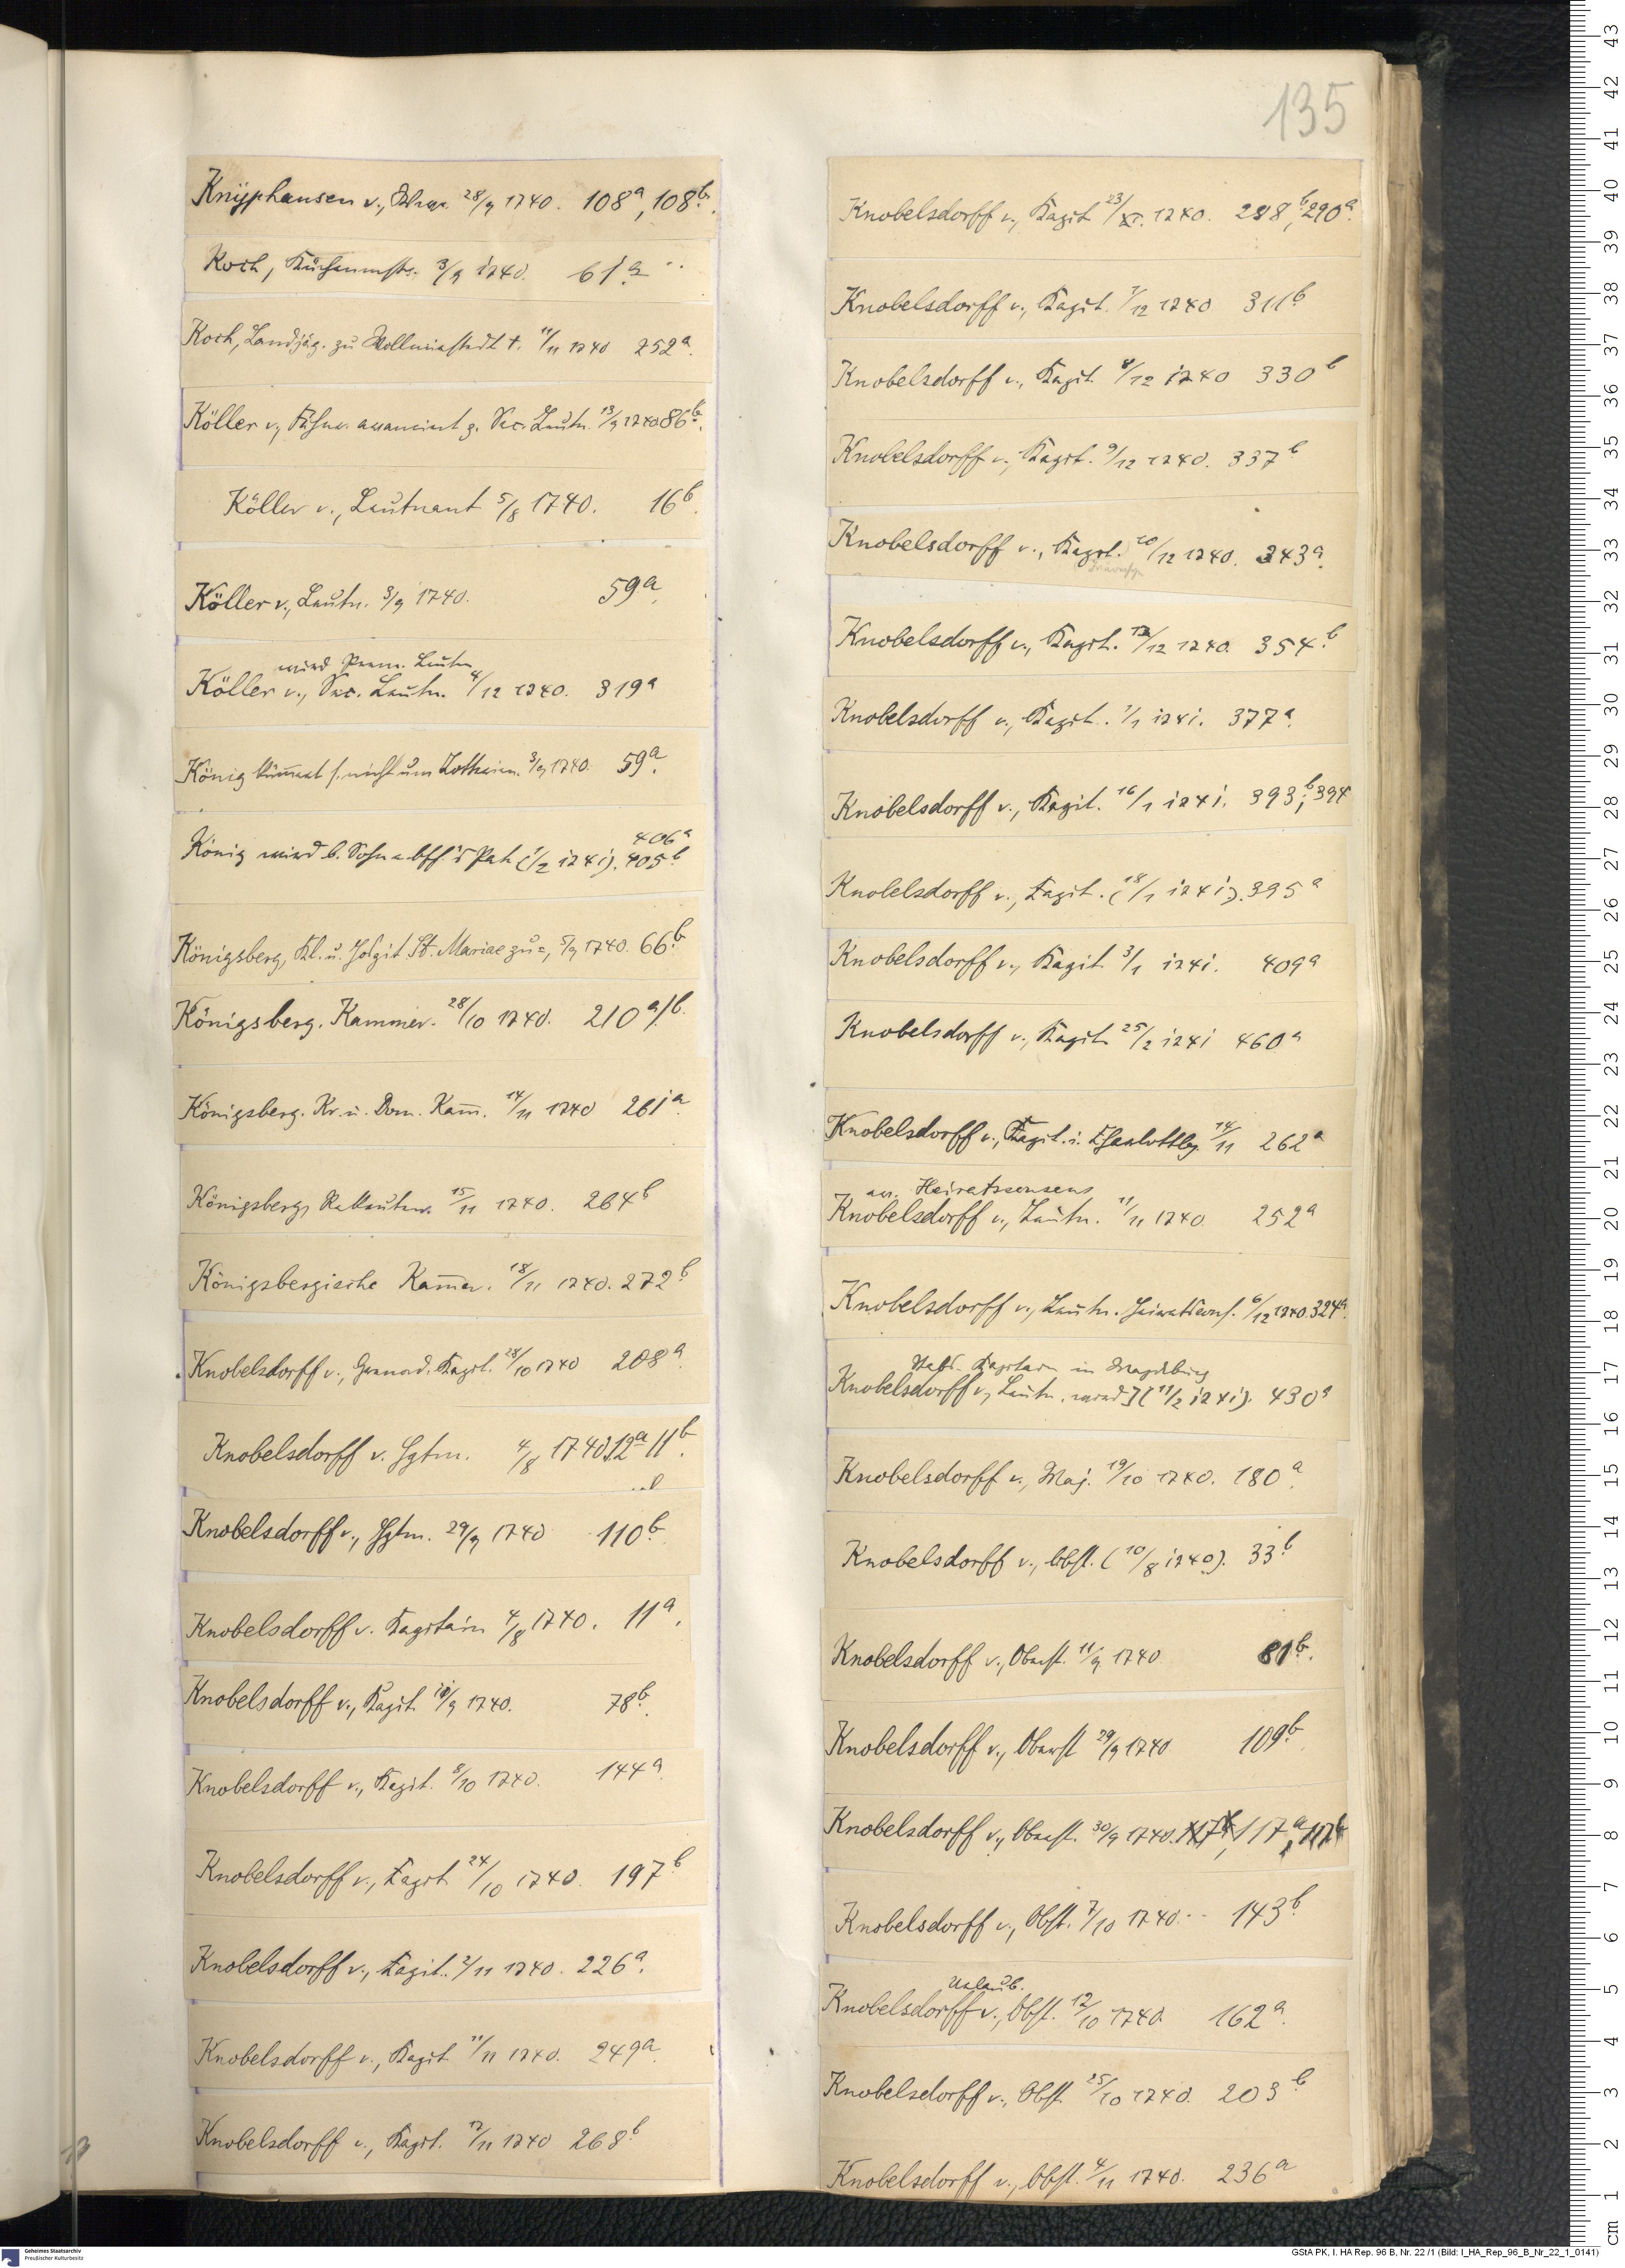 135
Knÿphausen v., 28/9 1740. 108a, 108b.
Koch, Küchenmstr. 3/9 1740. 61a
Koch, Landjäg. zu Wollmirstedt †. 11/11 1740 252a.
Köller v., Fähnr. avanciert z. Sec. Leutn. 13/9 1740 86b.
Köller v., Leutnant 5/8 1740. 16b.
Köller v., Leutn. 3/9 1740. 59a.
wird Prem. Leutn.
Köller v., Sec. Leutn. 4/12 1740. 319a
König kümmert s. nicht um 3/9 1740. 59a.
406a
König wird b. Pate (1/2 1741). 405b
Königsberg, Kl. u. St. Mariae zu =, 5/9 1740. 66b.
Königsberg. Kammer. 28/10 1740. 210a/b.
Königsberg. Kr. u. Dom. Kam̅. 14/11 1740 261a.
Königsberg, 15/11 1740. 264b
Königsbergische Kam̅er. 18/11 1740. 272b.
Knobelsdorff v., Grenad. Kapit. 28/10 1740 208a.
Knobelsdorff v. Hptm. 4/8 1740 12a 11b.
Knobelsdorff v., Hptm. 29/9 1740 110b.
Knobelsdorff v. Kapitain 4/8 1740. 11a.
Knobelsdorff v., Kapit. 10/9 1740. 78b.
Knobelsdorff v., Kapit. 8/10 1740. 144a.
Knobelsdorff v., Kapit. 24/10 1740. 197b
Knobelsdorff v., Kapit. 2/11 1740. 226a.
Knobelsdorff v., Kapit. 11/11 1740. 249a.
Knobelsdorff v., Kapit. 17/11 1740 268b.
Knobelsdorff v., Kapit. 23/XI. 1740. 288b, 290a.
Knobelsdorff v., Kapit. 1/12 1740 311b
Knobelsdorff v., Kapit. 8/12 1740 330b
Knobelsdorff v., Kapit. 9/12 1740. 337b
Knobelsdorff v., Kapit. 10/12 1740. 343a.
Knobelsdorff v., Kapit. 13/12 1740. 354b.
Knobelsdorff v., Kapit. 1/1 1741. 377a.
Knobelsdorff v., Kapit. 16/1 1741. 393b, 394
Knobelsdorff v., Kapit. (18/1 1741). 395a
Knobelsdorff v., Kapit. 3/1 1741. 409a
Knobelsdorff v., Kapit. 25/2 1741 460a
Knobelsdorff v., Kapit. i. Charlottbg. 14/11 262a
Heiratsconsens
Knobelsdorff v., Leutn. 11/11 1740. 252a
Knobelsdorff v., Leutn. Heiratscons. 6/12 1740. 324a.
Stabs-Kapitain in Magdeburg
Knobelsdorff v., Leutn. wird] (11/2 1741). 430a
Knobelsdorff v., Maj. 19/10 1740. 180a.
Knobelsdorff v., Obst. (10/8 1740). 33b.
Knobelsdorff v., Oberst. 11/9 1740 81b.
Knobelsdorff v., Oberst 29/9 1740 109b.
Knobelsdorff v., Oberst. 30/9 1740. 117a, 117b
Knobelsdorff v., Obst. 7/10 1740. 143b.
Urlaub.
Knobelsdorff v., Obst. 12/10 1740 162a.
Knobelsdorff v., Obst. 25/10 1740. 203b.
Knobelsdorff v., Obst. 4/11 1740. 236a
Geheimes Staatsarchiv
Preußischer Kulturbesitz
GStA PK, I. HA Rep. 96 B, Nr. 22 /1 (Bild: I_HA_Rep_96_B_Nr_22_1_0141)